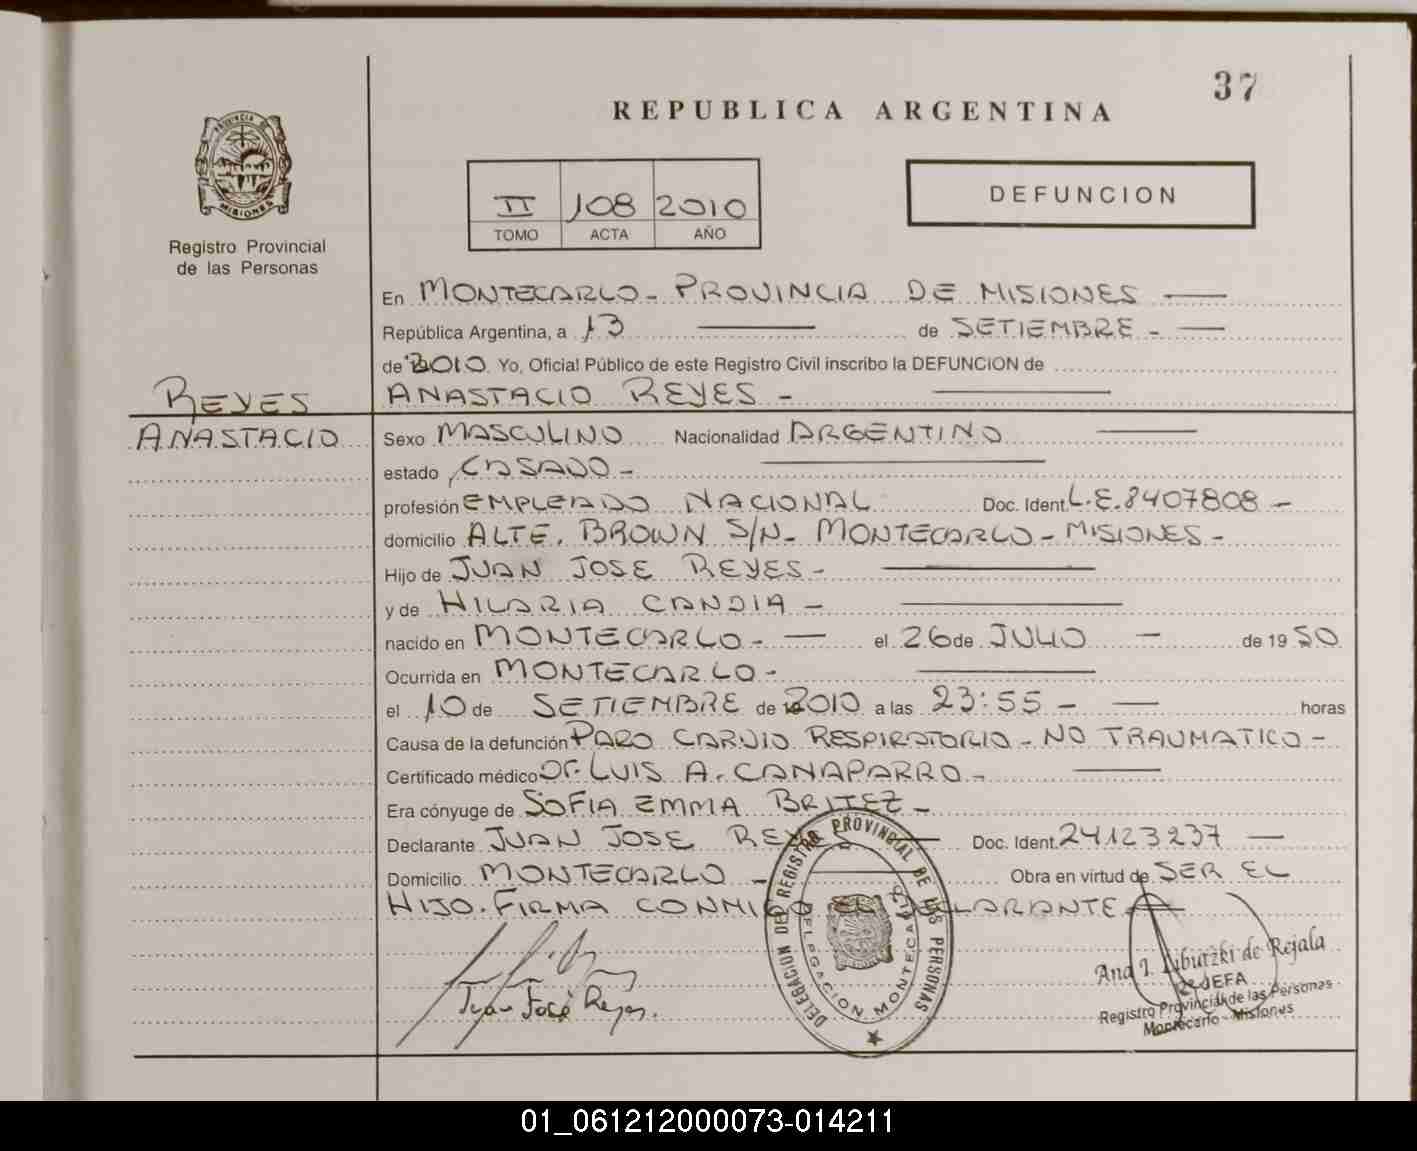 37
REPUBLICA ARGENTINA
PROVINCIA DE
MISIONES
Registro Provincial
de las Personas
II 108 2010
TOMO ACTA AÑO
DEFUNCION
En MONTECARLO - PROVINCIA DE MISIONES
República Argentina, a 13 de SETIEMBRE -
de 2010 Yo, Oficial Público de este Registro Civil inscribo la DEFUNCION de
ANASTACIO REYES -
REYES
ANASTACIO
Sexo MASCULINO Nacionalidad ARGENTINO
estado CASADO -
profesión EMPLEADO NACIONAL Doc. Ident. L.E. 8407808 -
domicilio ALTE. BROWN S/N - MONTECARLO - MISIONES -
Hijo de JUAN JOSE REYES -
y de HILARIA CANDIA -
nacido en MONTECARLO - el 26 de JULIO - de 1950
Ocurrida en MONTECARLO -
el 10 de SETIEMBRE de 2010 a las 23:55 - horas
Causa de la defunción PARO CARDIO RESPIRATORIO - NO TRAUMATICO -
Certificado médico Dr. LUIS A. CANAPARRO -
Era cónyuge de SOFIA EMMA BRITEZ -
Declarante JUAN JOSE REYES Doc. Ident. 24123237
Domicilio MONTECARLO - Obra en virtud de SER EL
HIJO. FIRMA CONMIGO EL DECLARANTE
Juan José Reyes.
DELEGACION DEL REGISTRO PROVINCIAL DE LAS PERSONAS
DELEGACION MONTECARLO
Ana I. Liburzki de Rejala
2º JEFA
Registro Provincial de las Personas
Montecarlo - Misiones
01_061212000073-014211